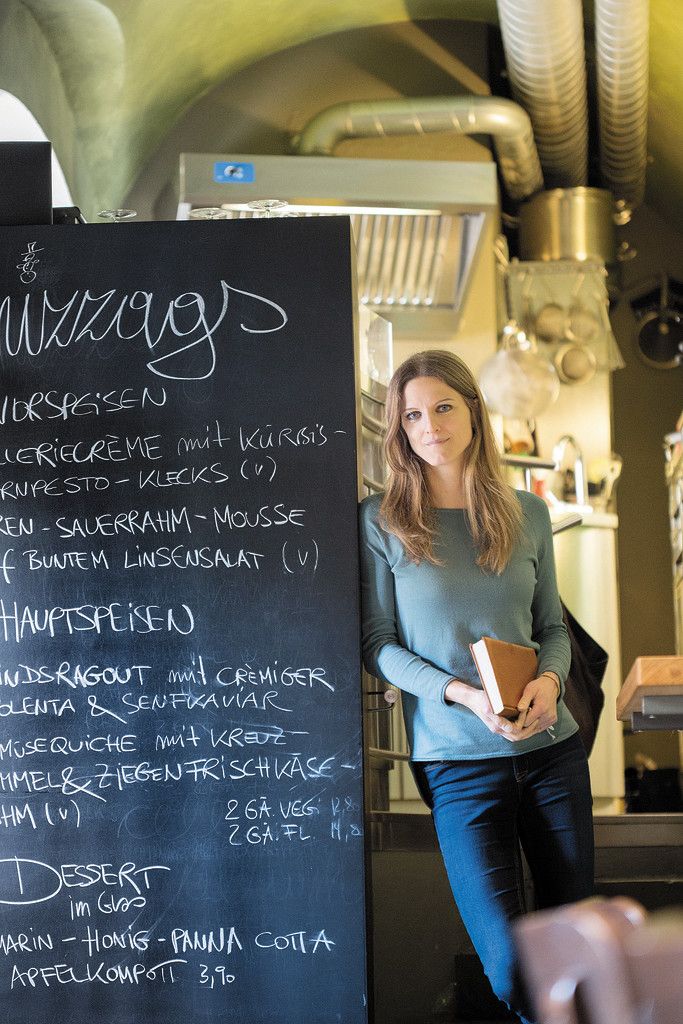 uzzags
VORSPEISEN
LLERIECRÈME mit KÜRBIS-
RNPESTO-KLECKS (v)
REN-SAUERRAHM-MOUSSE
f BUNTEM LINSENSALAT (v)
HAUPTSPEISEN
INDSRAGOUT mit CRÈMIGER
OLENTA & SENFKAVIAR
MÜSEQUICHE mit KREUZ-
MMEL & ZIEGENFRISCHKÄSE-
HM (v)
2 GÄ. VEG. 12,8
2 GÄ. FL. 14,8
DESSERT
im Glas
MARIN-HONIG-PANNA COTTA
APFELKOMPOTT 3,90